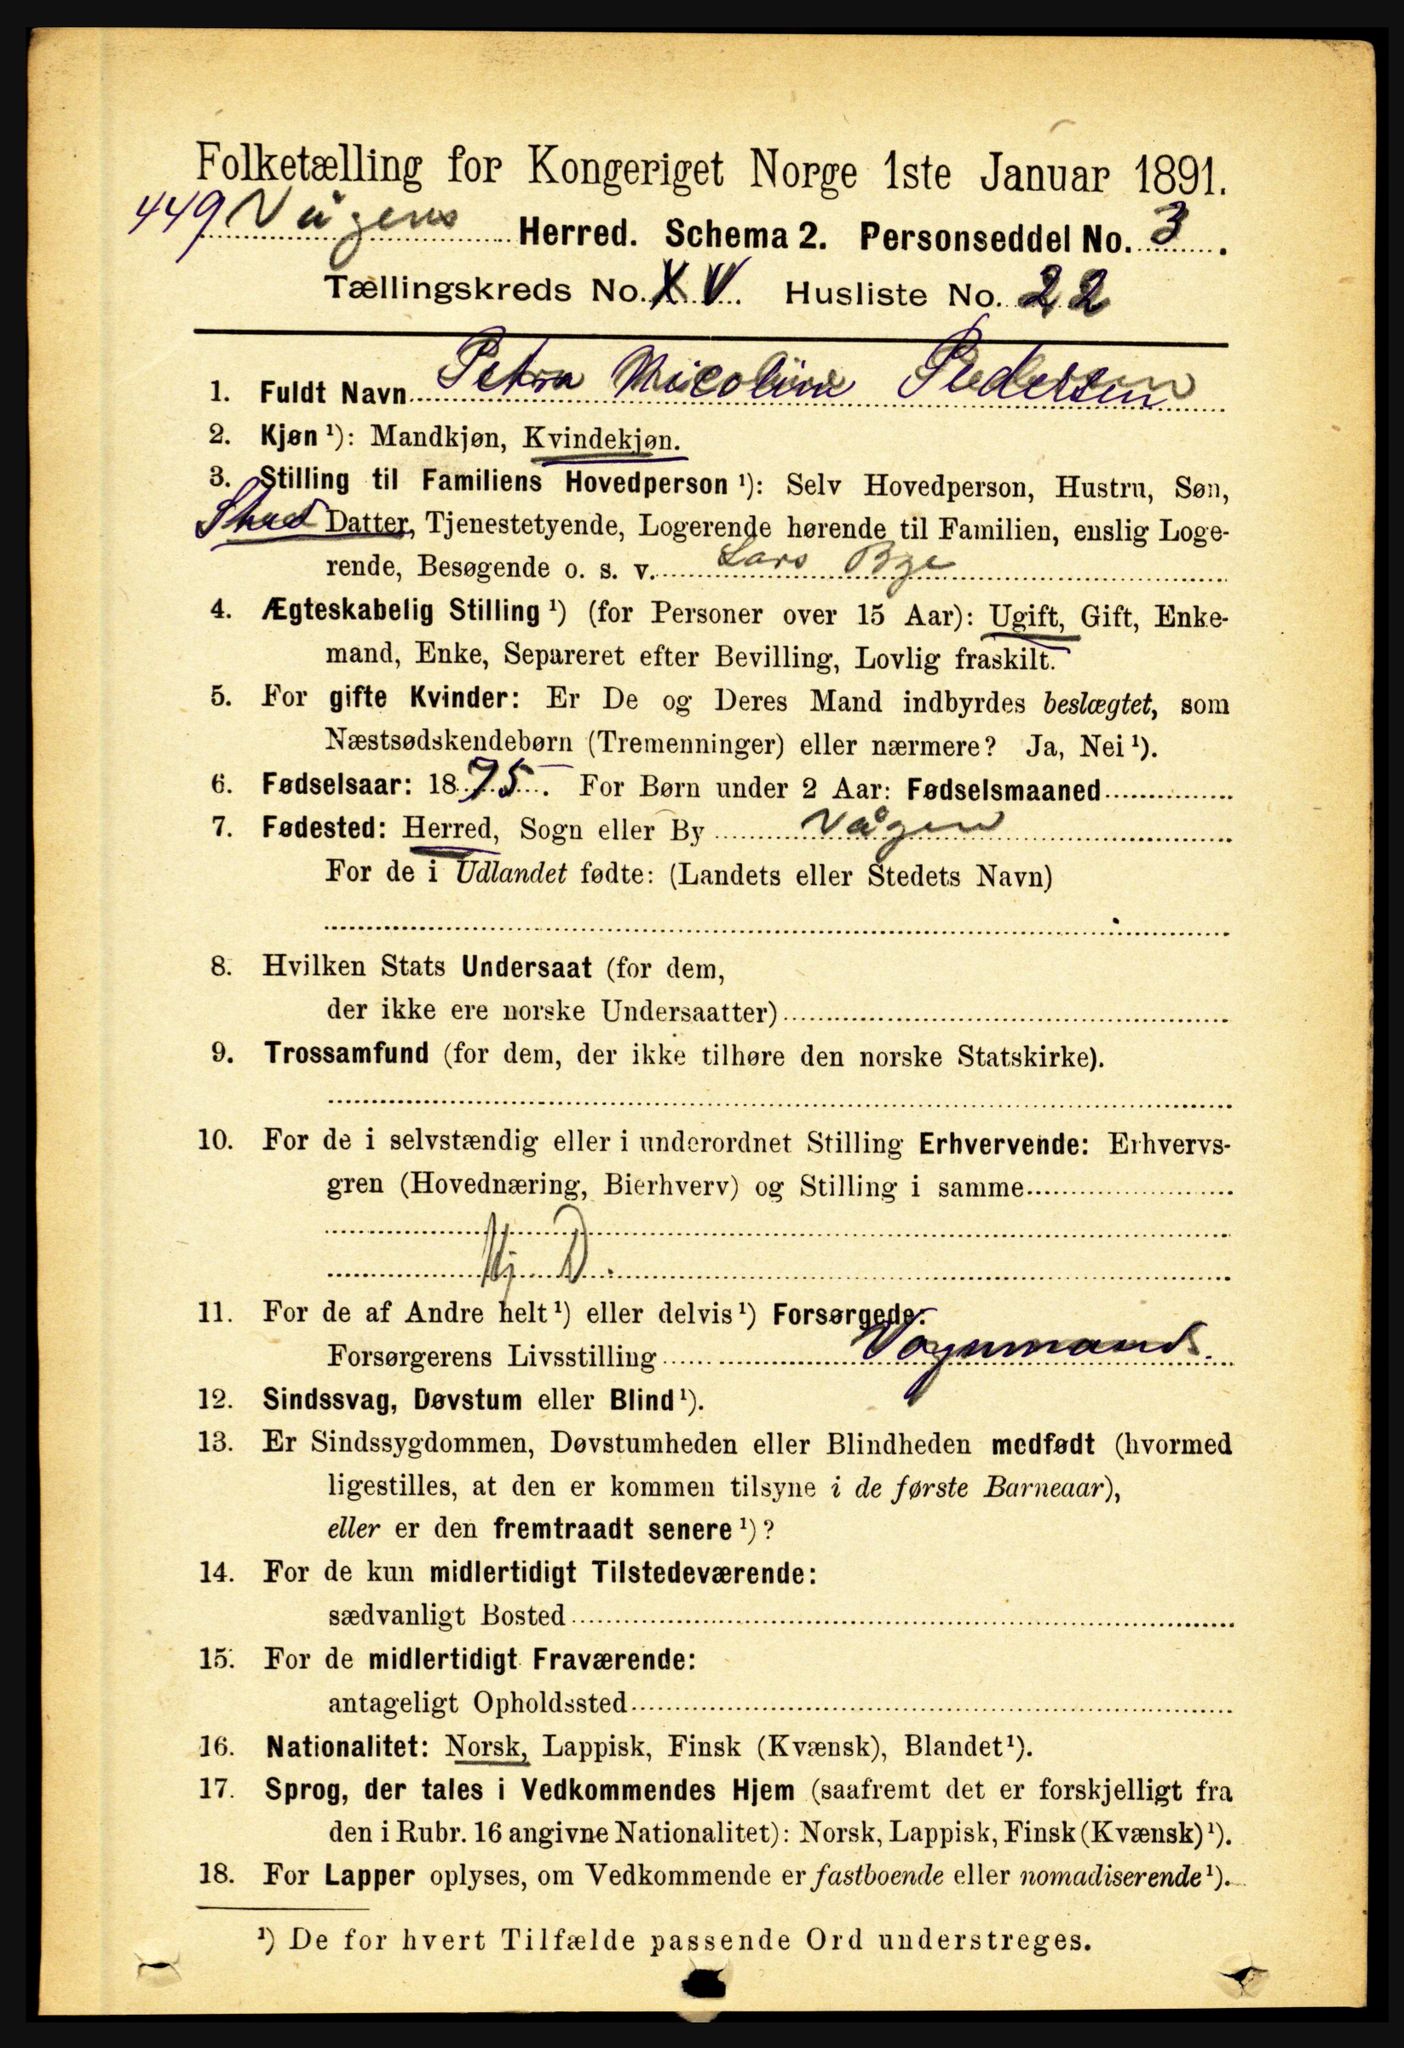 Folketælling for Kongeriget Norge 1ste Januar 1891.
449 Vågens Herred. Schema 2. Personseddel No. 3.
Tællingskreds No. XV. Husliste No. 22
1. Fuldt Navn Petra Nicoline Pedersen
2. Kjøn ¹): Mandkjøn, Kvindekjøn.
3. Stilling til Familiens Hovedperson ¹): Selv Hovedperson, Hustru, Søn,
Datter, Tjenestetyende, Logerende hørende til Familien, enslig Loge-
rende, Besøgende o. s. v. Lars Bye
4. Ægteskabelig Stilling ¹) (for Personer over 15 Aar): Ugift, Gift, Enke-
mand, Enke, Separeret efter Bevilling, Lovlig fraskilt.
5. For gifte Kvinder: Er De og Deres Mand indbyrdes beslægtet, som
Næstsødskendebørn (Tremenninger) eller nærmere? Ja, Nei ¹).
6. Fødselsaar: 1875. For Børn under 2 Aar: Fødselsmaaned
7. Fødested: Herred, Sogn eller By Vågen
For de i Udlandet fødte: (Landets eller Stedets Navn)
8. Hvilken Stats Undersaat (for dem,
der ikke ere norske Undersaatter)
9. Trossamfund (for dem, der ikke tilhøre den norske Statskirke).
10. For de i selvstændig eller i underordnet Stilling Erhvervende: Erhvervs-
gren (Hovednæring, Bierhverv) og Stilling i samme
Hj. D.
11. For de af Andre helt ¹) eller delvis ¹) Forsørgede:
Forsørgerens Livsstilling Vognmand.
12. Sindssvag, Døvstum eller Blind ¹).
13. Er Sindssygdommen, Døvstumheden eller Blindheden medfødt (hvormed
ligestilles, at den er kommen tilsyne i de første Barneaar),
eller er den fremtraadt senere ¹)?
14. For de kun midlertidigt Tilstedeværende:
sædvanligt Bosted
15. For de midlertidigt Fraværende:
antageligt Opholdssted
16. Nationalitet: Norsk, Lappisk, Finsk (Kvænsk), Blandet ¹).
17. Sprog, der tales i Vedkommendes Hjem (saafremt det er forskjelligt fra
den i Rubr. 16 angivne Nationalitet): Norsk, Lappisk, Finsk (Kvænsk) ¹).
18. For Lapper oplyses, om Vedkommende er fastboende eller nomadiserende ¹).
¹) De for hvert Tilfælde passende Ord understreges.